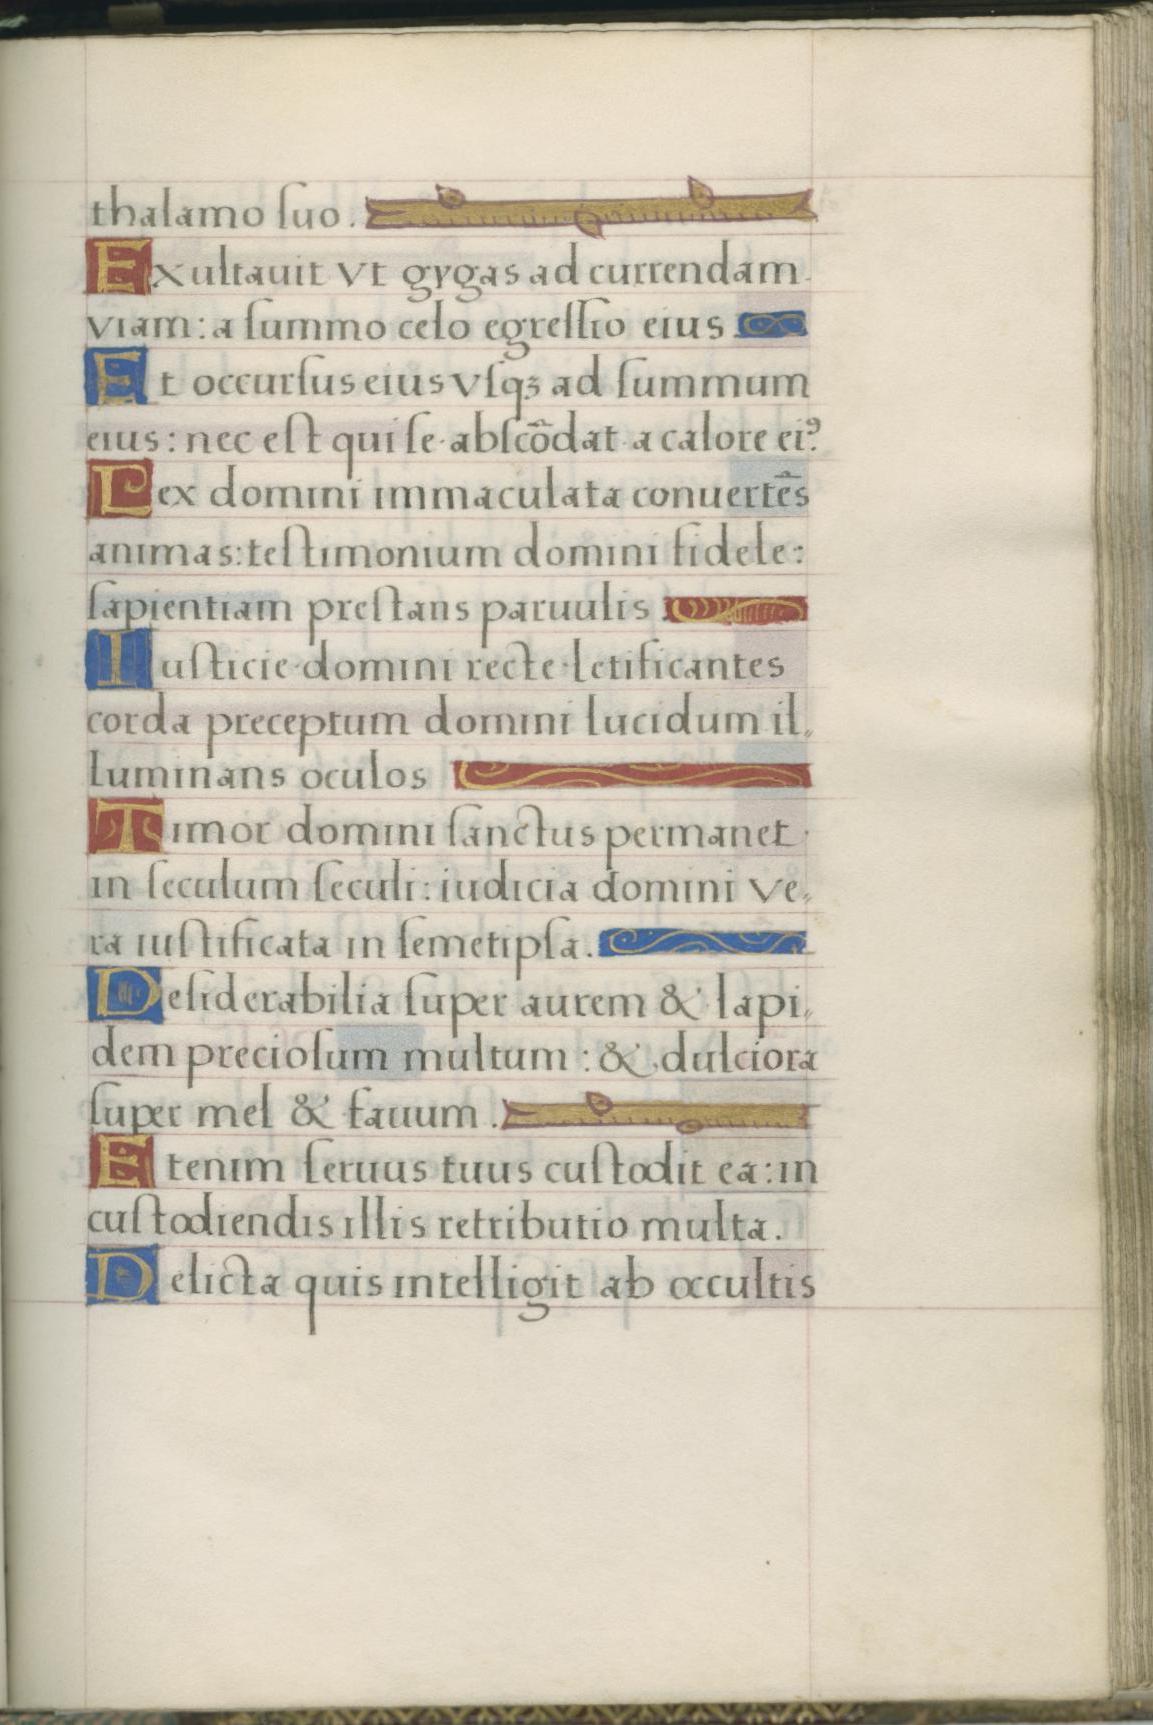 thalamo ſuo.
Exultauit vt gygas ad currendam
viam: a ſummo celo egreſſio eius
Et occurſus eius vſqꝫ ad ſummum
eius: nec eſt qui ſe abſcōdat a calore eiꝰ
Lex domini immaculata conuertēs
animas: teſtimonium domini fidele:
ſapientiam preſtans paruulis
Iuſticie domini recte letificantes
corda preceptum domini lucidum il,
luminans oculos
Timor domini ſanctus permanet
in ſeculum ſeculi: iudicia domini ve,
ra iuſtificata in ſemetipſa.
Deſiderabilia ſuper aurem & lapi,
dem precioſum multum: & dulciora
ſuper mel & fauum.
Etenim ſeruus tuus cuſtodit ea: in
cuſtodiendis illis retributio multa.
Delicta quis intelligit ab occultis